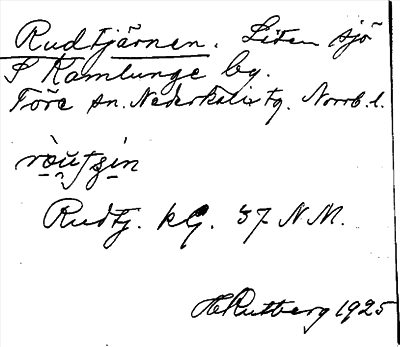 Rudtjärnen. Liten sjö
S Kamlunge by.
Töre sn. Nederkalix tg. Norrb. l.
Rudtj. kG. 37 N.M.
H Rutberg 1925